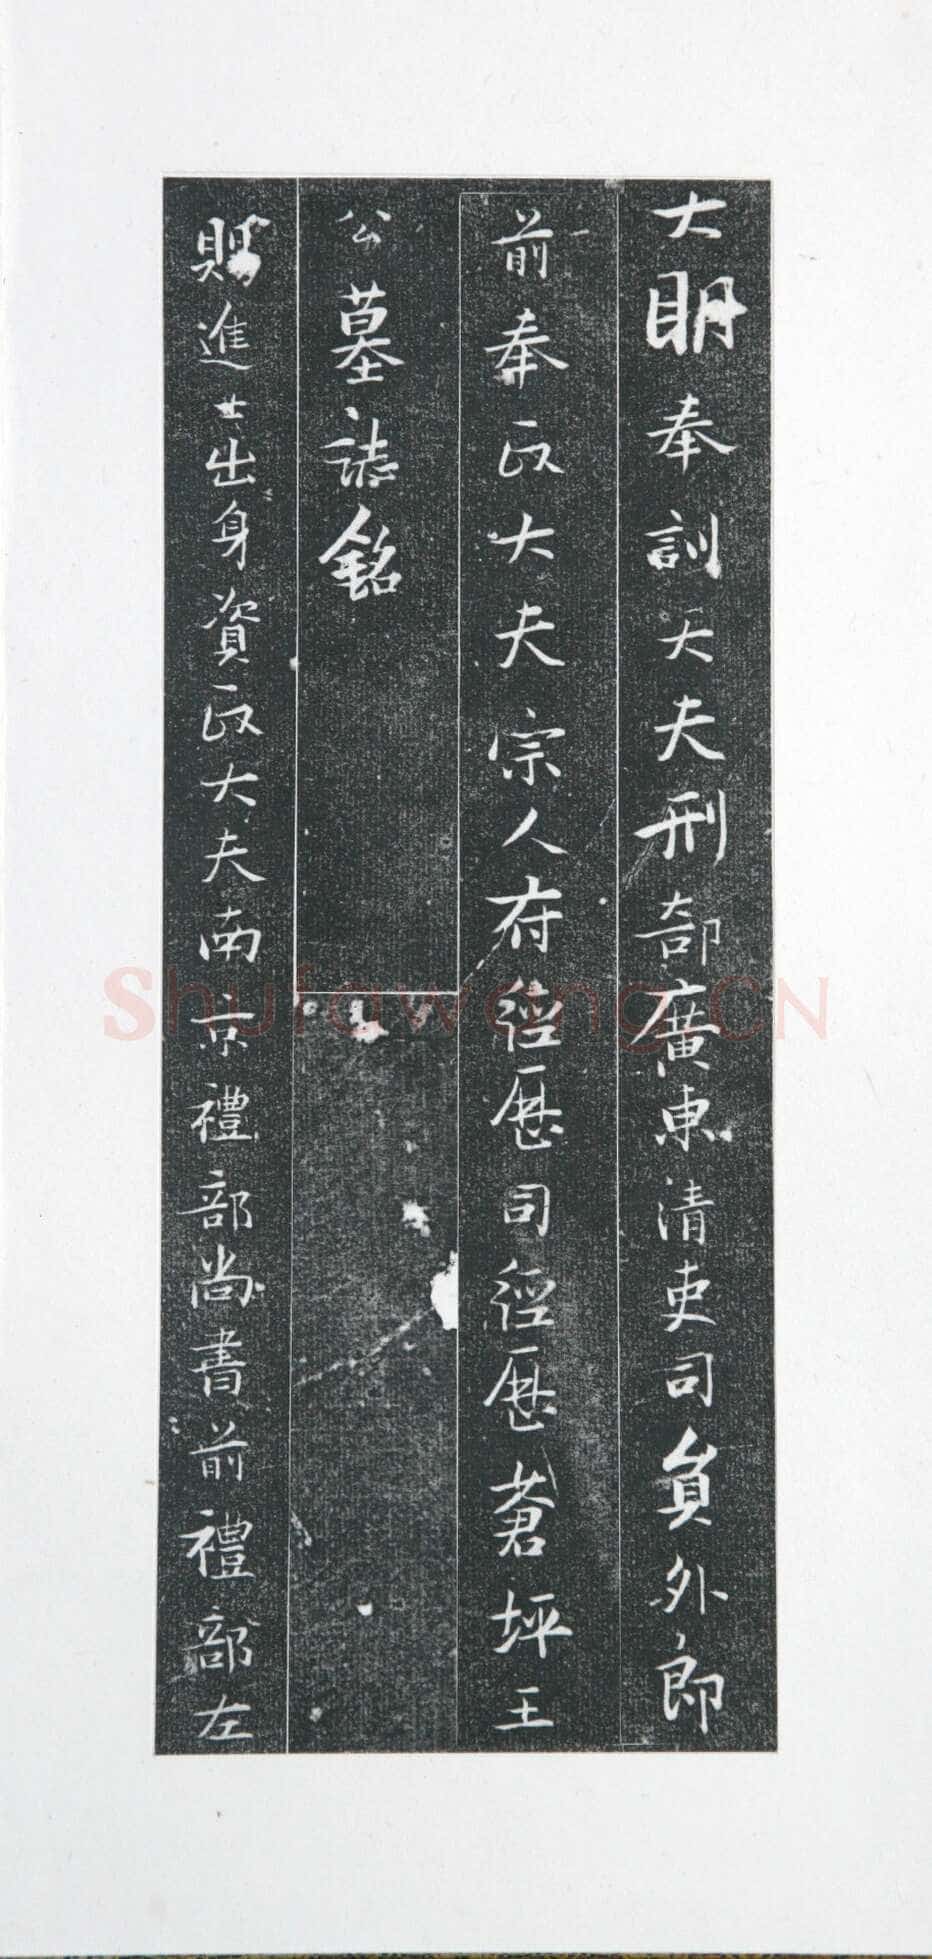 大明奉訓大夫刑部廣東清吏司員外郎
前奉政大夫宗人府經歷司經歷蒼坪王
公墓誌銘
賜進士出身資政大夫南京禮部尚書前禮部左
Shufawang.CN